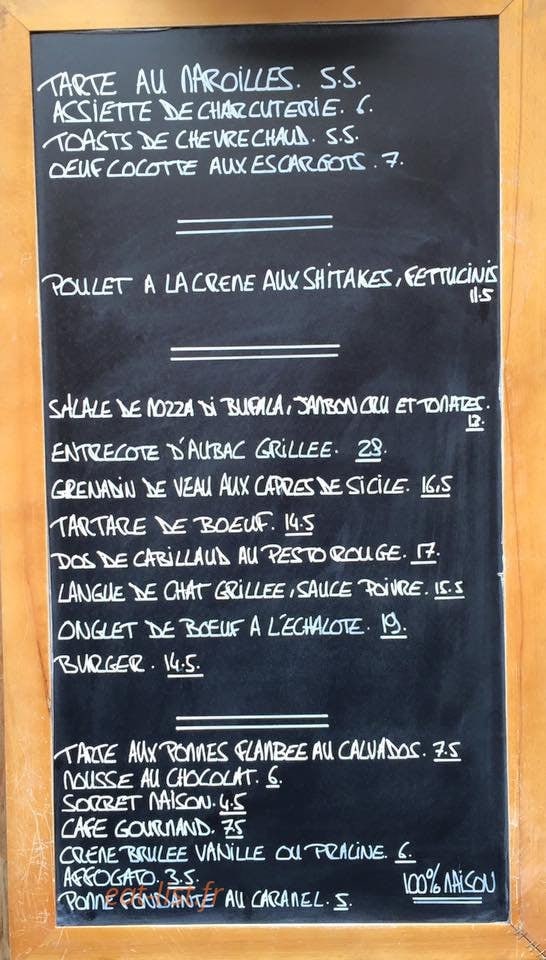 TARTE AU MAROILLES. 5.5.
ASSIETTE DE CHARCUTERIE. 6.
TOASTS DE CHEVRE CHAUD. 5.5.
OEUF COCOTTE AUX ESCARGOTS. 7.
POULET A LA CREME AUX SHITAKES, FETTUCINIS
11.5
SALADE DE MOZZA DI BUFALA, JAMBON CRU ET TOMATES.
12.
ENTRECOTE D'AUBAC GRILLEE. 23.
GRENADIN DE VEAU AUX CAPRES DE SICILE. 16,5
TARTARE DE BOEUF. 14.5
DOS DE CABILLAUD AU PESTO ROUGE. 17.
LANGUE DE CHAT GRILLEE, SAUCE POIVRE. 15.5
ONGLET DE BOEUF A L'ECHALOTE. 19.
BURGER. 14.5.
TARTE AUX POMMES FLAMBEE AU CALVADOS. 7.5
MOUSSE AU CHOCOLAT. 6.
SORBET MAISON. 4.5
CAFE GOURMAND. 75
CREME BRULEE VANILLE OU PRALINE. 6.
AFFOGATO. 3.5.
100% MAISON
POMME FONDANTE AU CARAMEL. 5.
eat-list.fr